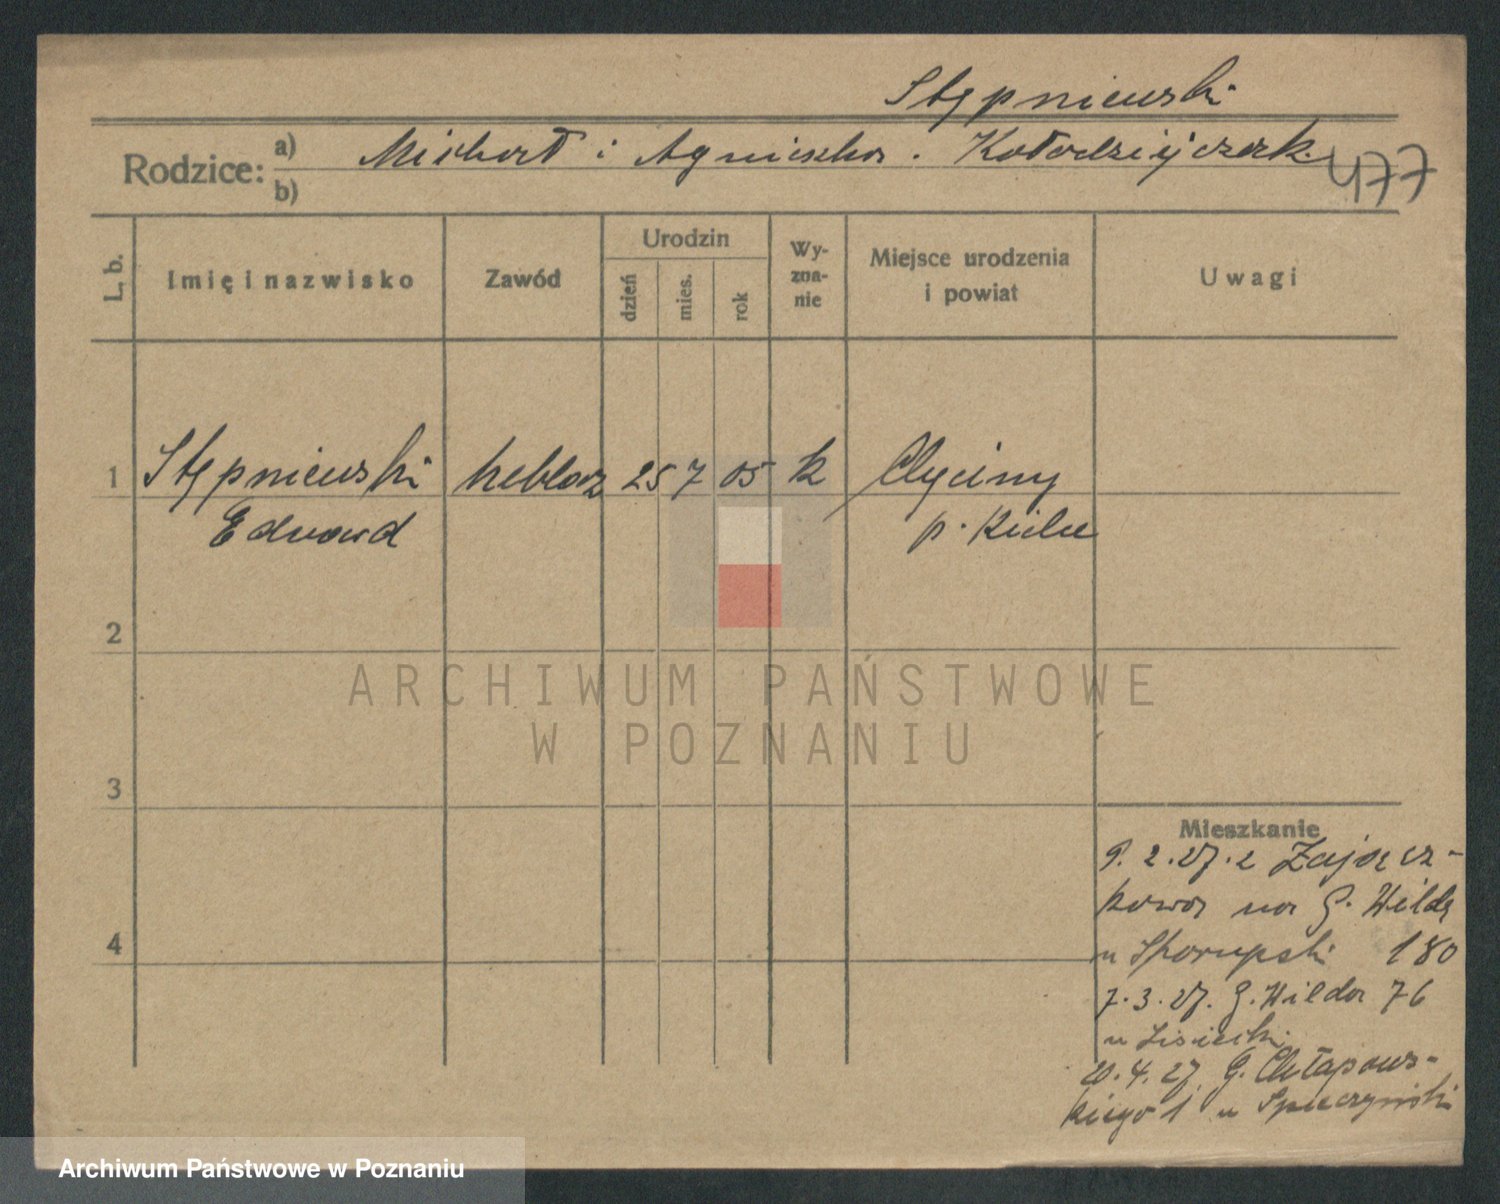 Stępniewski
Rodzice: a) Michał i Agnieszka. Kołodziejczak. 477
b)
L. b. Imię i nazwisko Zawód Urodzin dzień mies. rok Wy-zna-nie Miejsce urodzenia i powiat Uwagi
1 Stępniewski 25 7 05 k
Edward p. Kielce
2
ARCHIWUM PAŃSTWOWE
W POZNANIU
3
Mieszkanie
2.27. z Zającz-
kowa na G. Wildę
4
u Skorupski 180
7.3.27. G. Wilda 76
u Lisiecki
20.4.27 G. Chłapows-
kiego 1 u
Archiwum Państwowe w Poznaniu